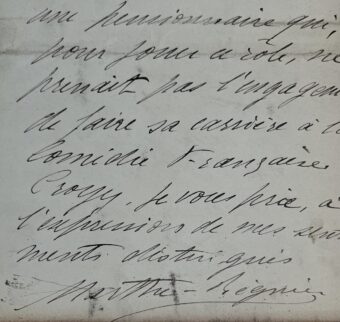 une pensionnaire qui,
pour jouer ce rôle, ne
prenait pas l'engagem
de faire sa carrière à la
Comédie Française
Croyez, je vous prie, à
l'expression de mes sen
ments distingués
Marthe Régnier